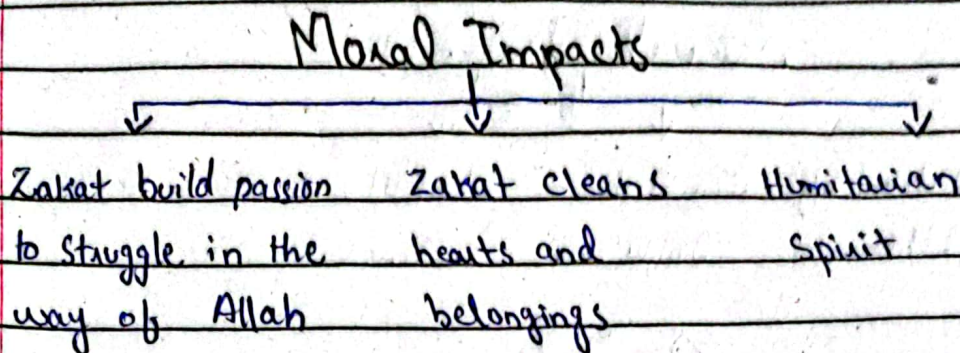 Moral Impacts
Zakat build passion
to struggle in the
way of Allah
Zakat cleans
hearts and
belongings
Humitarian
Spirit